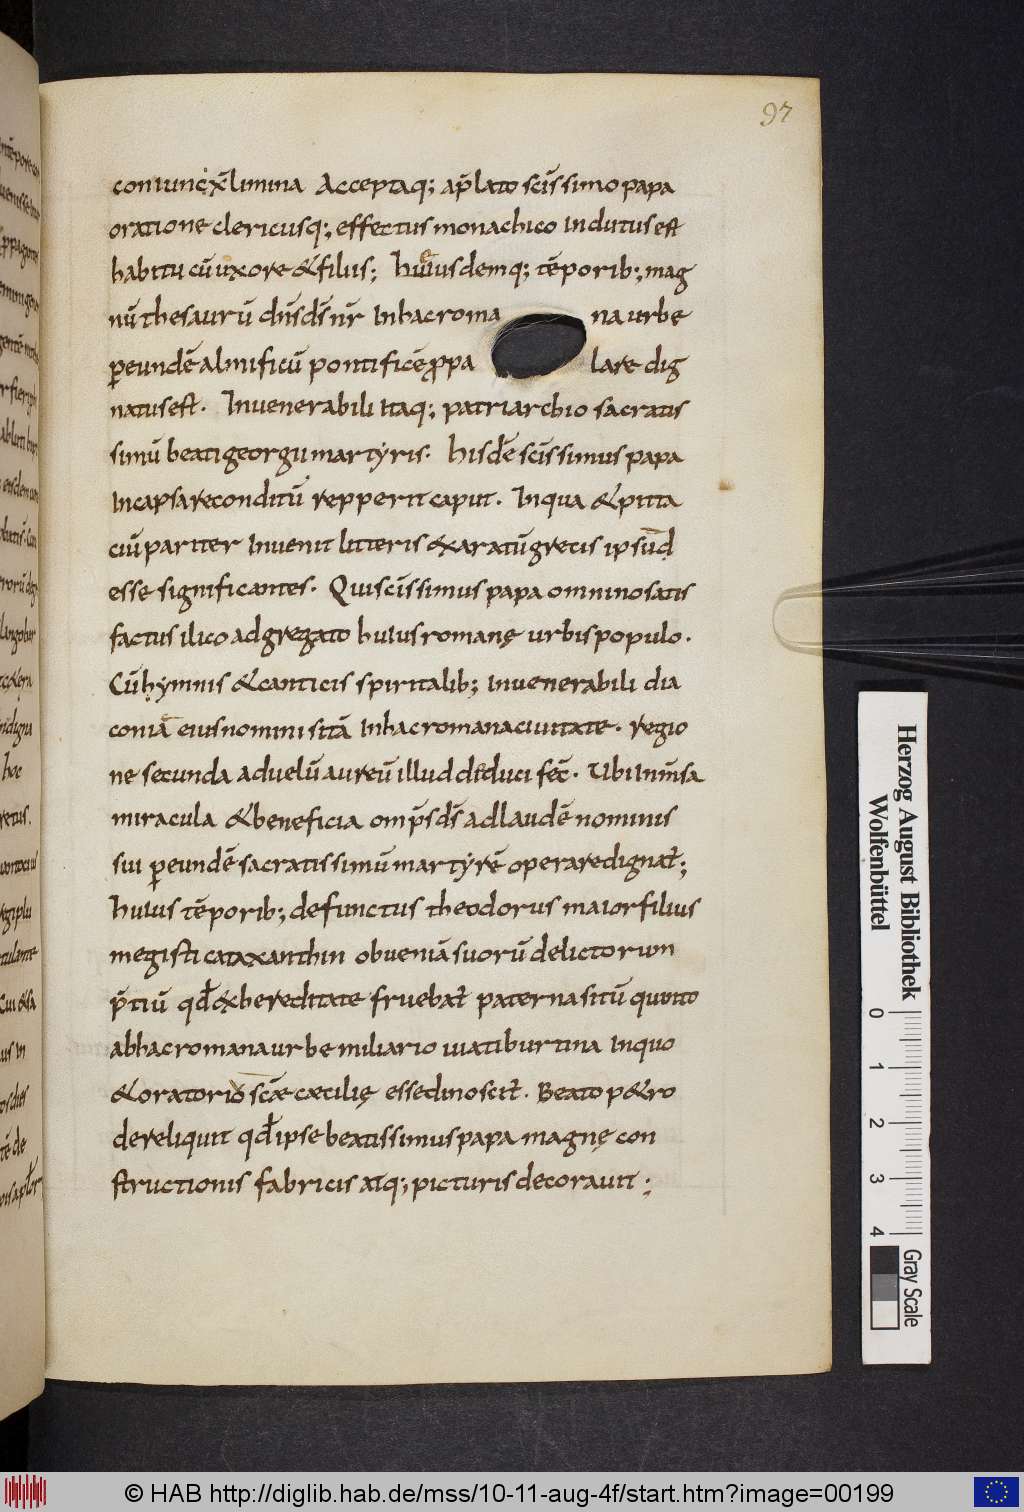 97
coniunċ x̄ limina Acceptaq; ap̄lato scīssimo papa
oratione clericusq; effectus monachico indutus est
habitu cū uxore & filiis; huiusdemq; tēporib; mag
nū thesaurū dn̄s ds̄ nr̄ In hac roma na urbę
ꝑ eundē almificū pontificē ꝓpa lare dig
natus est. In uenerabili Itaq; patriarchio sacratis
simū beati georgii martyris. hisdē scīssimus papa
In capsa reconditū repperit caput. In qua & pitta
ciū pariter Inuenit litteris exaratū grecis ipsud
esse significantes. Qui scīssimus papa omnino satis
factus ilico adgregato huius romanę urbis populo.
Cū hymnis & canticis spiritalib; Inuenerabili dia
coniā eius nomini sitā In hac romana ciuitate. regio
ne secunda ad uelū aureū illud dēduci fec̄. Ubi Inm̄sa
miracula & beneficia omp̄s ds̄ ad laudē nominis
sui ꝑ eundē sacratissimū martyrē operare dignat̄;
huius tēporib; defunctus theodorus maior filius
megisti cataxanthin ob ueniā suorū delictorum
p̄tiū qd̄ ex hereditate fruebat̄ paterna sitū quinto
ab hac romana urbe miliario uia tiburtina In quo
& oratoriū scāe caecilię esse dinoscit̄. Beato p&ro
dereliquit qd̄ ipse beatissimus papa magnę con
structionis fabricis atq; picturis decorauit;
Herzog August Bibliothek
Wolfenbüttel
0 1 2 3 4
Gray Scale
© HAB http://diglib.hab.de/mss/10-11-aug-4f/start.htm?image=00199